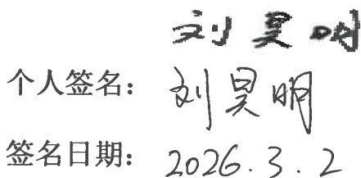 刘昊明
个人签名：刘昊明
签名日期：2026.3.2